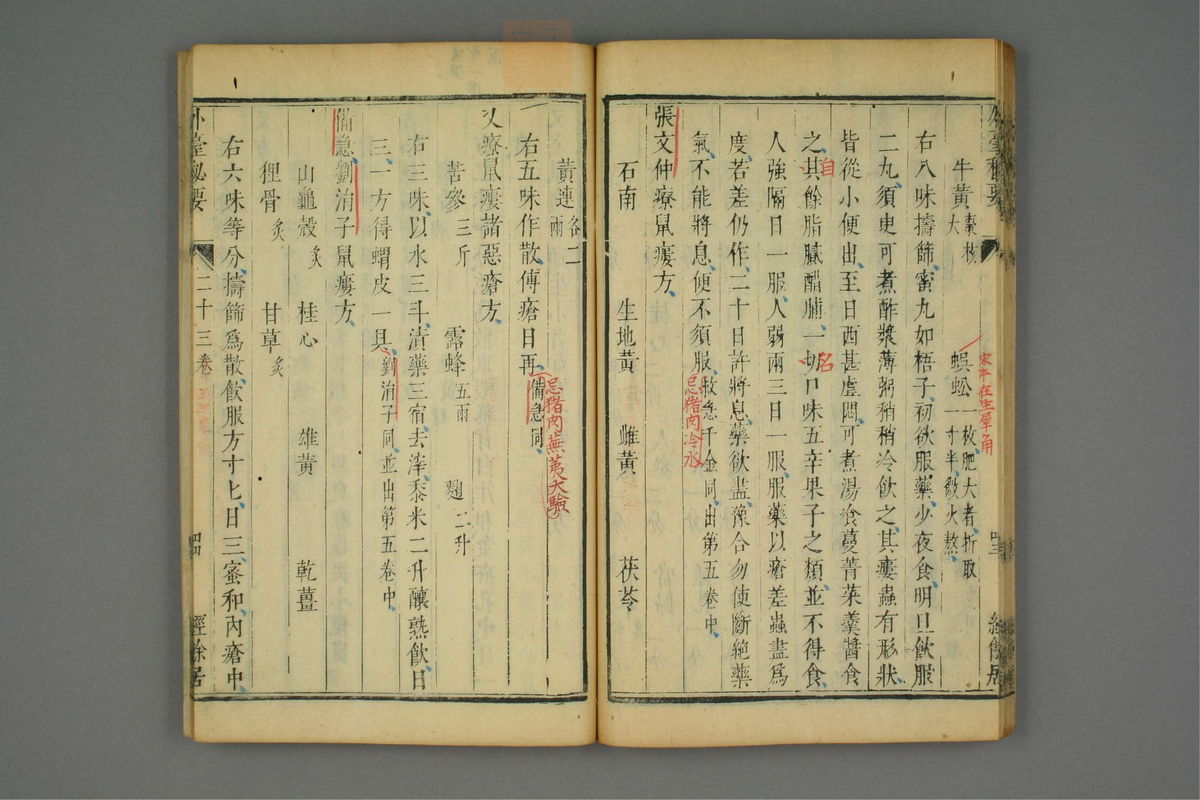 外臺秘要
牛黃大棗核
蜈蚣一枚肥大者折取一寸半微火熬
宋本在生犀角
右八味擣篩蜜丸如梧子初欲服藥少夜食明旦飲服
二丸須臾可煮酢漿薄粥稍稍冷飲之其瘻蟲有形狀
皆從小便出至日西甚虛悶可煮湯飡蔓菁菜羹醬食
之其餘脂膩醋脯一切口味五辛果子之類並不得食
自
名
人強隔日一服人弱兩三日一服服藥以瘡差蟲盡爲
度若差仍作二十日許將息藥欲盡豫合勿使斷絕藥
氣不能將息便不須服救急千金同出第五卷中
忌猪肉冷水
張文仲療鼠瘻方
石南 生地黃 雌黃 茯苓
黃連各二兩
右五味作散傅瘡日再備急同
忌猪肉蕪荑大驗
又療鼠瘻諸惡瘡方
苦參三斤 露蜂五兩 麴二升
右三味以水三斗漬藥三宿去滓黍米二升釀熟飲日
三一方得蝟皮一具劉涓子同並出第五卷中
備急劉涓子鼠瘻方
山龜殼炙 桂心 雄黃 乾薑
狸骨炙 甘草炙
右六味等分擣篩爲散飲服方寸匕日三蜜和內瘡中
外臺秘要
二十三卷
四四
經餘居